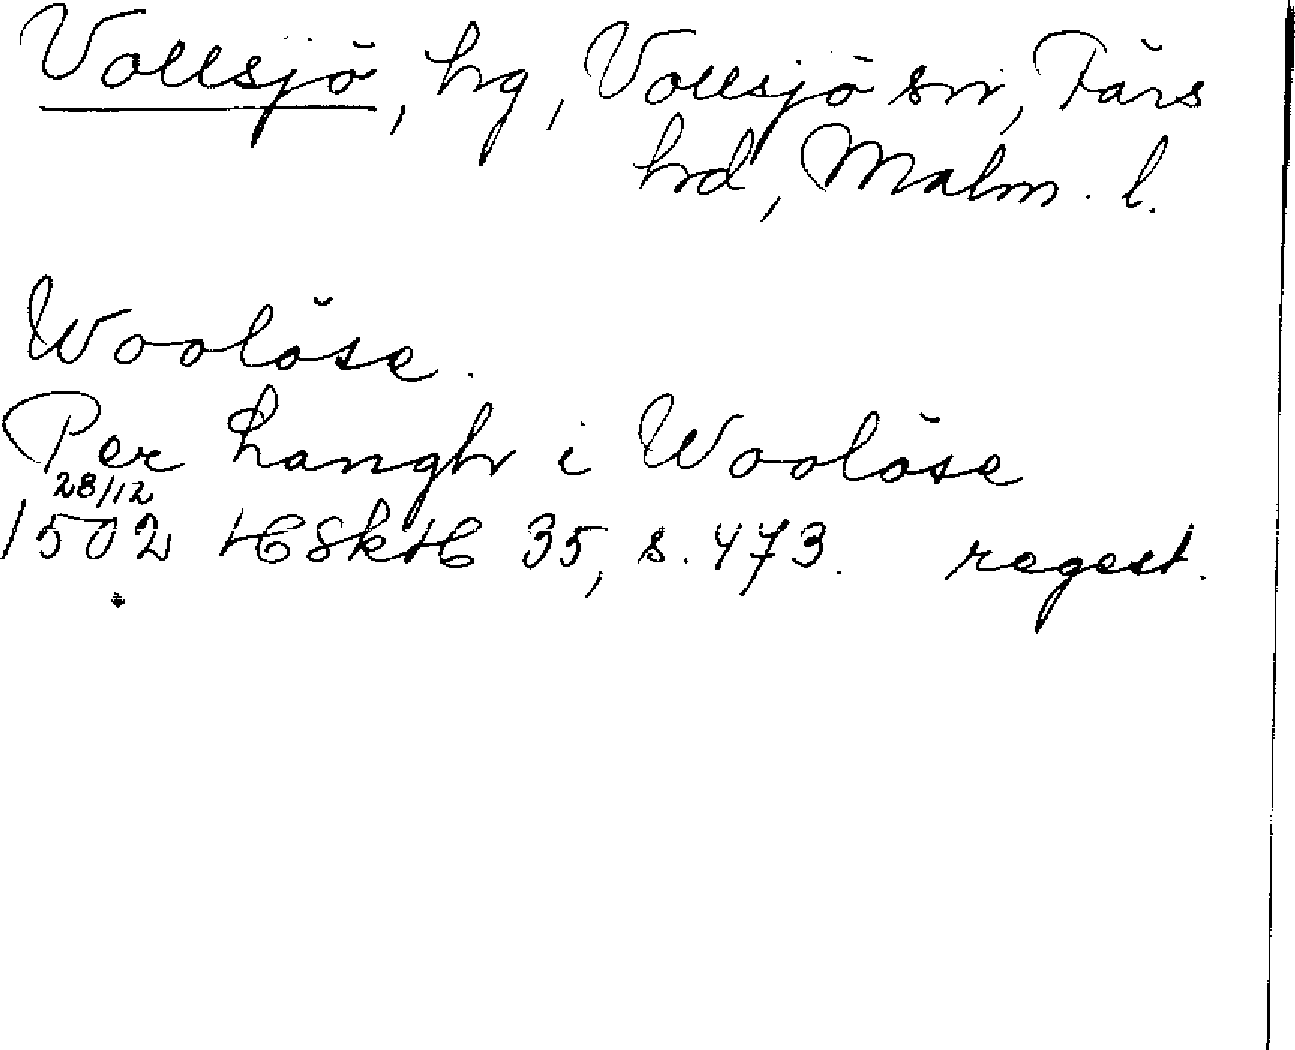 Vollsjö, hg, Vollsjö sn, Färs
hd, Malm. l.
Woolöse.
Per Langh i Woolöse
28/12
1502 HSkH 35, s. 473. regest.